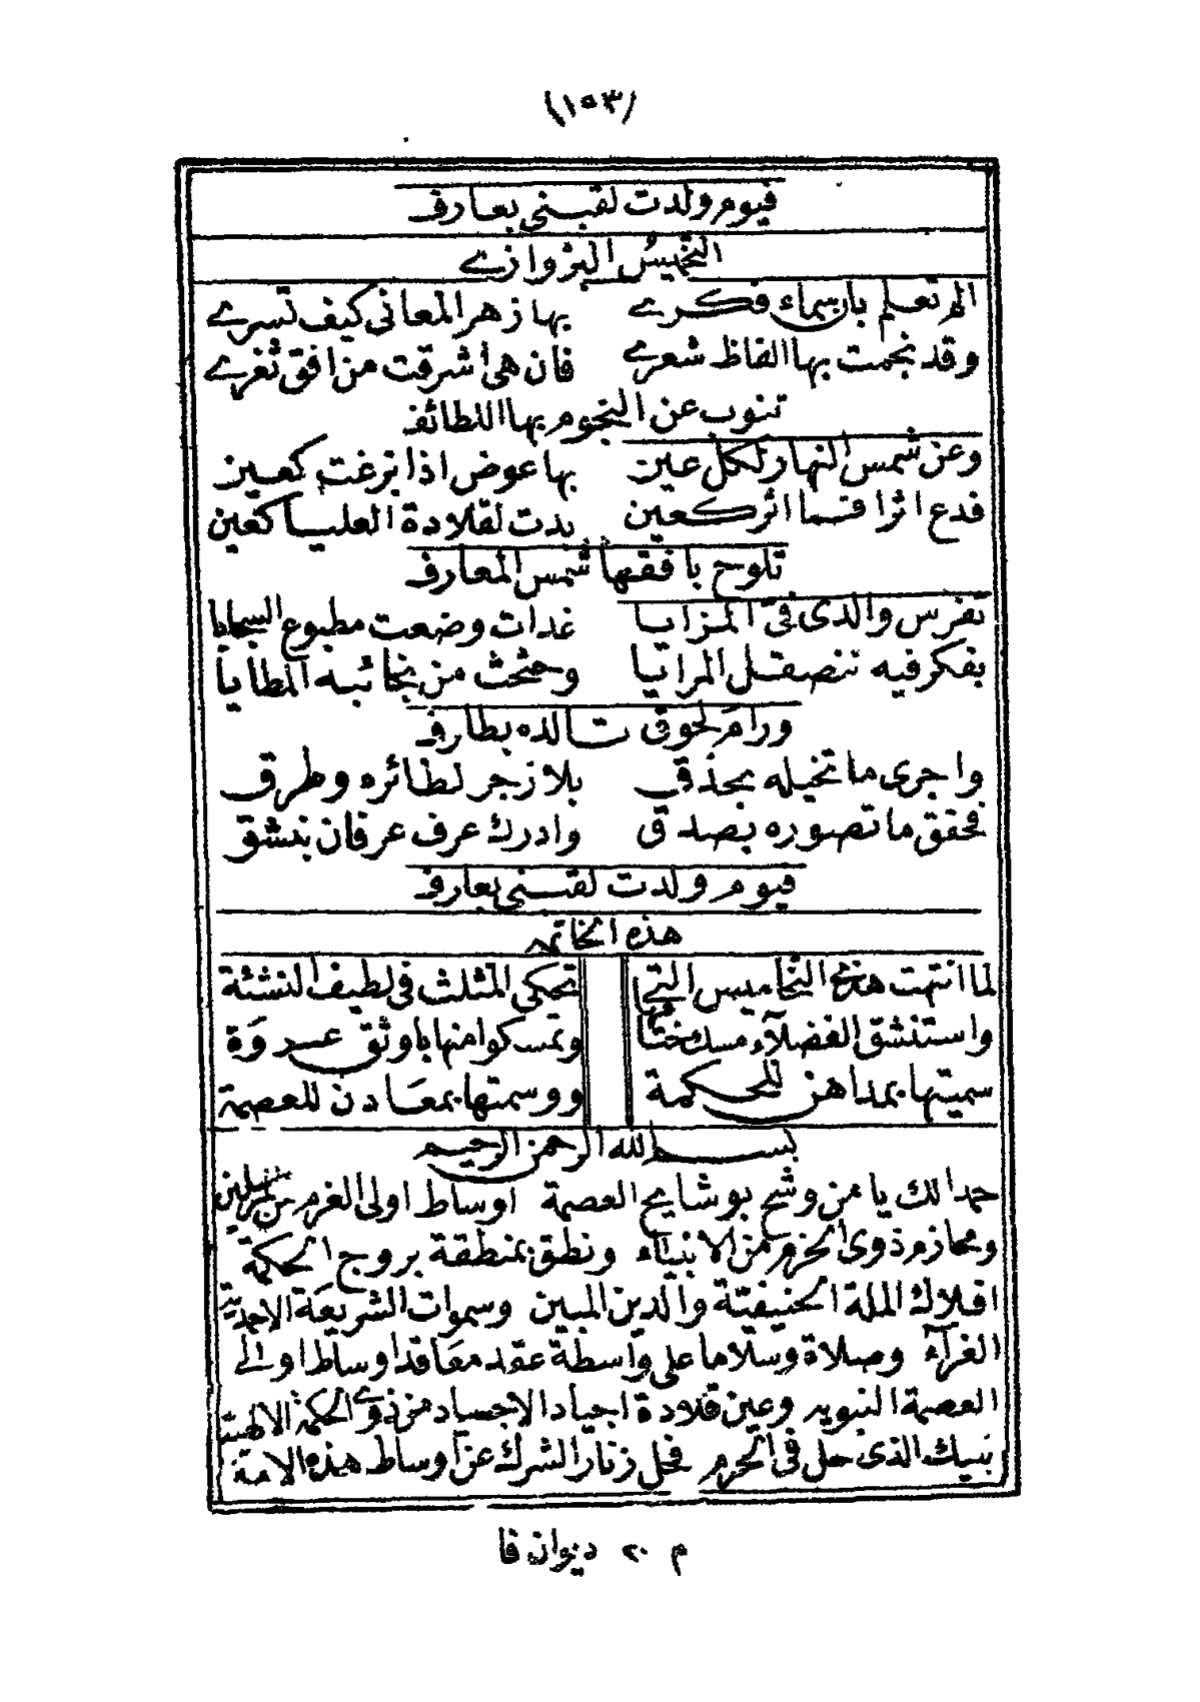 (١٥٣)
فيوم ولدت لقبني بعارف
التخميس البزوازي
الم تعلم بان سماء فكري بها زهر المعاني كيف تسري
وقد نجمت بها الفاظ شعري فان هي أشرقت من افق ثغري
تنوب عن النجوم بها اللطائف
وعن شمس النهار لكل عين بها عوض اذا بزغت كعين
فدع اثرا فما اثر كعين بدت لقلادة العليا كعين
تلوح بافقها شمس المعارف
تفرس والدى فيّ المزايا غداة وضعت مطبوع السجايا
بفكر فيه تنصقل المرايا وحثحث من نجائبه المطايا
ورام لحوق تالده بطارف
واجرى ما تخيله بحذق بلا زجر لطائره وطرق
فحقق ما تصوره بصدق وادرك عرف عرفان بنشق
فيوم ولدت لقبني بعارف
هذه الخاتمه
لما انتهت هذى التخاميس التى تحكى المثلث فى لطيف النشئة
واستنشق الفضلآء مسك ختامها وتمسكوا منها باوثق عروة
سميتها بمداهن للحكمة ووسمتها بمعادن للعصمة
بسم الله الرحمن الرحيم
حمدا لك يا من وشح بوشايح العصمة اوساط اولى العزم من المرسلين
ومحازم ذوى الحزم من الانبياء ونطق بمنطقة بروج الحكمة
افلاك الملة الحنيفية والدين المبين وسموات الشريعة الاحمدية
الغرآء وصلاة وسلاما على واسطة عقد معاقد اوساط اولى
العصمة النبويه وعين قلادة اجياد الاجساد من ذوي الحكمة الالهية
نبيك الذى حل فى الحرم فحل زنار الشرك عن اوساط هذه الامة
م ٢٠ ديوان فا